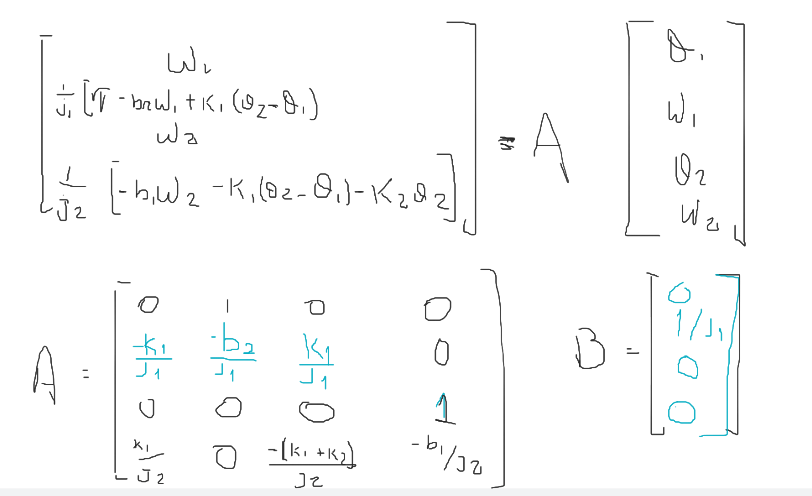 [ ω₁
1/J₁ [τ - b₂ω₁ + K₁(θ₂-θ₁)
ω₂
1/J₂ [-b₁ω₂ - K₁(θ₂-θ₁) - K₂θ₂] ] = A [ θ₁
ω₁
θ₂
ω₂ ]
A = [ 0 1 0 0
-K₁/J₁ -b₂/J₁ K₁/J₁ 0
0 0 0 1
K₁/J₂ 0 -(K₁+K₂)/J₂ -b₁/J₂ ]
B = [ 0
1/J₁
0
0 ]